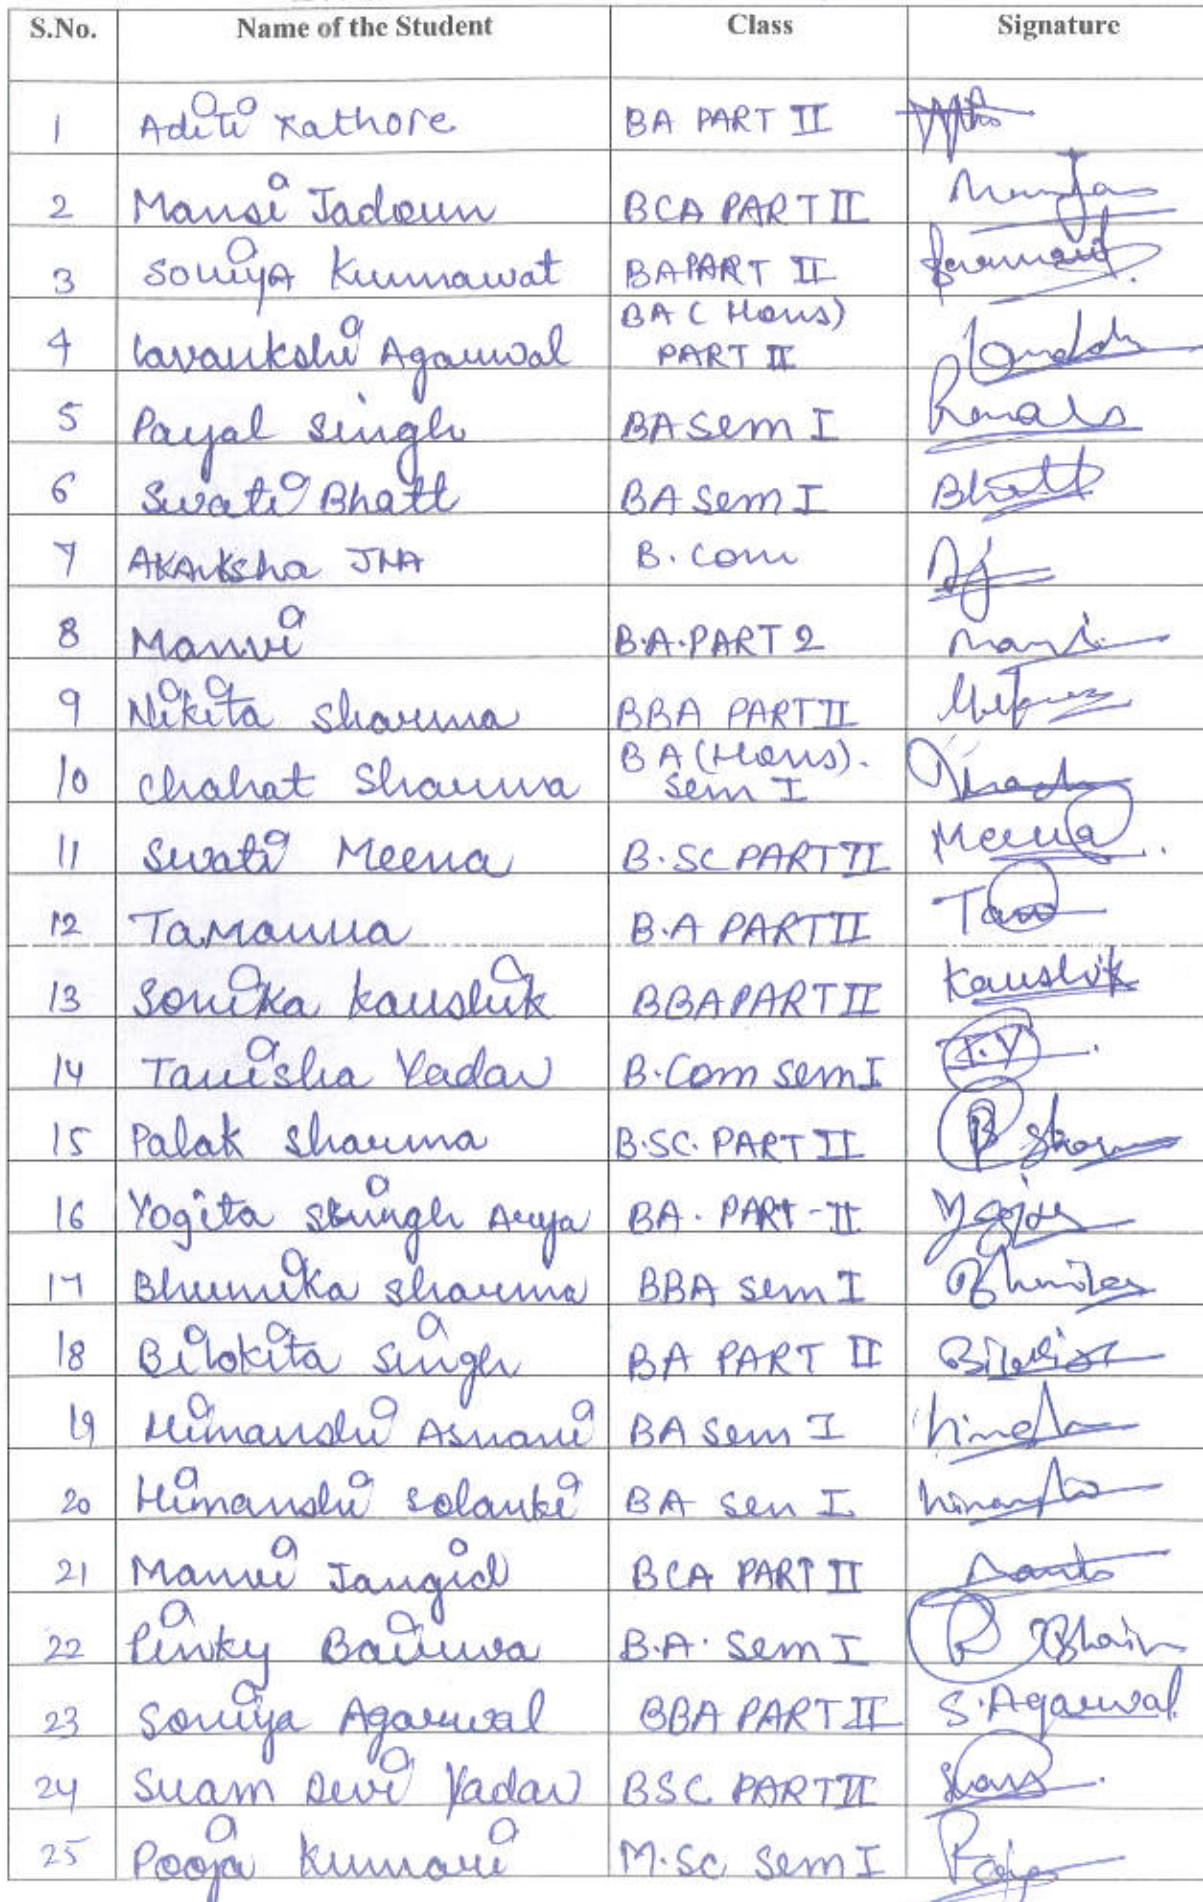 S.No. Name of the Student Class Signature
1 Aditi Rathore BA PART II
2 Mansi Jadoun BCA PART II
3 Soniya Kumawat BA PART II
BA (Hons)
4 Lavankshi Agarwal PART II
5 Payal Singh BA Sem I
6 Swati Bhatt BA Sem I Bhatt
7 AKANKSha JHA B. Com AJ
8 Manvi B.A. PART 2 Manvi
9 Nikita Sharma BBA PART II
BA (Hons).
10 Chahat Sharma Sem I
11 Swati Meena B.SC PART II Meena
12 TaManna B.A PART II Tann
13 Sonika Kaushik BBA PART II Kaushik
14 Tanisha Yadav B.Com Sem I T.Y
15 Palak Sharma B.SC. PART II P Sharm
16 Yogita Singh Arya BA. PART-II
17 Bhumika Sharma BBA Sem I
18 Bilokita Singh BA PART II
19 Himanshi Asnani BA Sem I
20 Himanshi Solanki BA Sen I
21 Manvi Jangid BCA PART II
22 Pinky Bairwa B.A. Sem I
23 Soniya Agarwal BBA PART II S. Agarwal
24 Suam Devi Yadav BSC PART II
25 Pooja Kumari M.SC Sem I Pooja